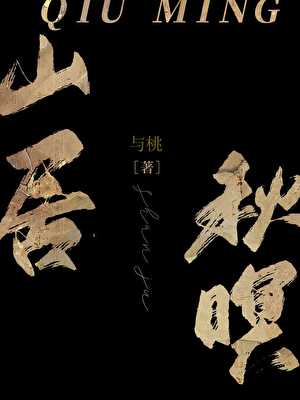 QIU MING
山居
秋暝
与桃
[著]
shan ju